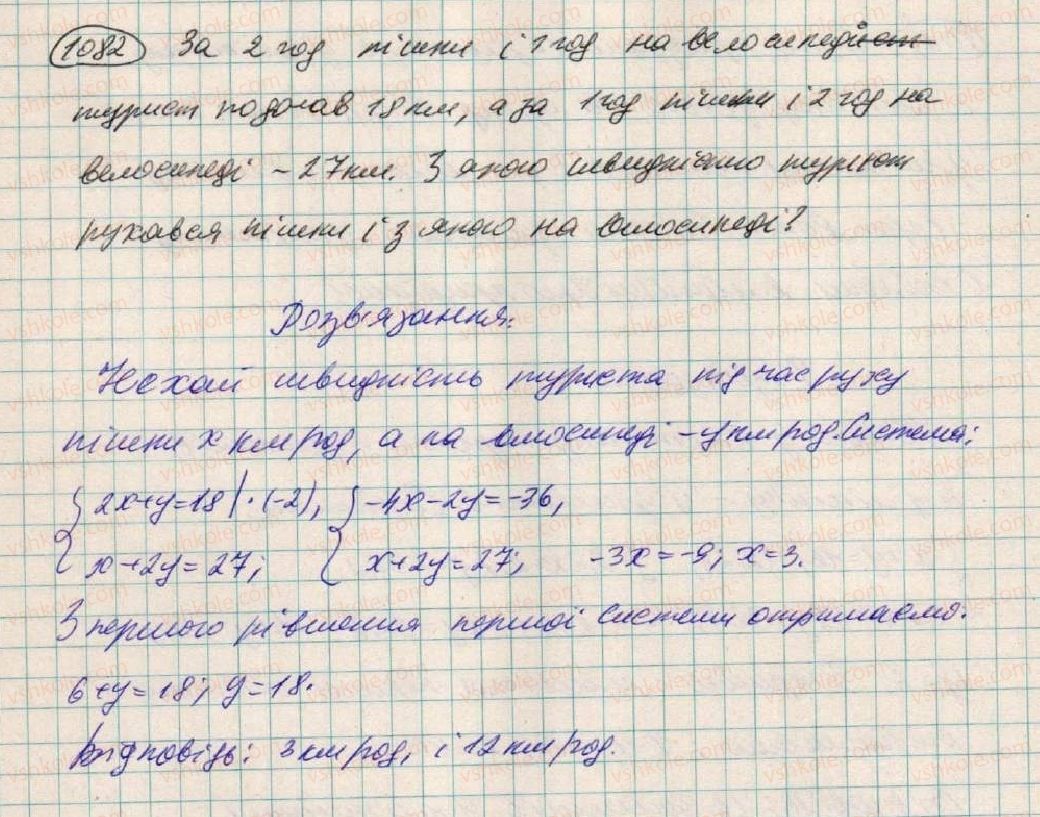 1082 За 2 год пішки і 1 год на велосипеді
турист подолав 18 км, а за 1 год пішки і 2 год на
велосипеді - 27 км. З якою швидкістю турист
рухався пішки і з якою на велосипеді?
Розв'язання:
Нехай швидкість туриста під час руху
пішки x км/год, а на велосипеді - y км/год. Система:
{ 2x+y=18 | · (-2), { -4x-2y=-36,
x+2y=27; x+2y=27; -3x=-9; x=3.
З першого рівняння першої системи отримаємо:
6+y=18; y=18.
Відповідь: 3 км/год, і 12 км/год.